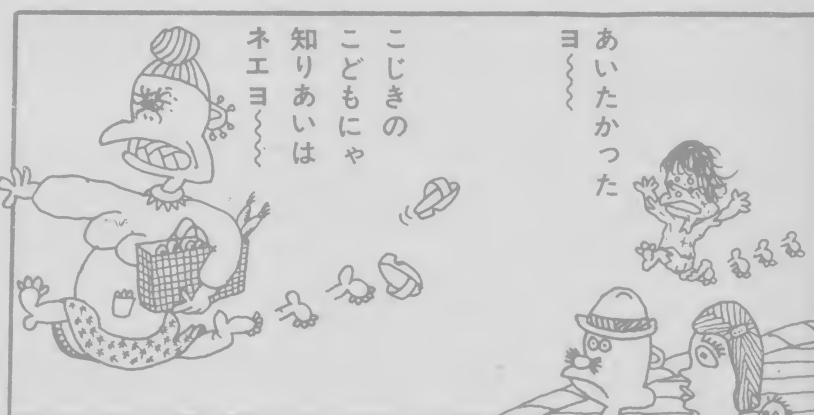 あいたかった
ヨ～～～
こじきの
こどもにゃ
知りあいは
ネエヨ～～～